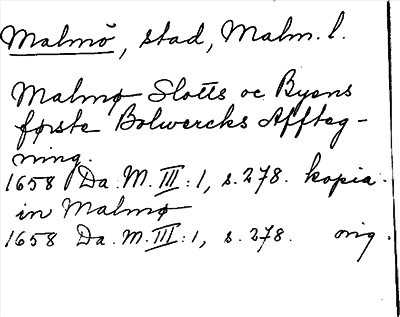 Malmö, stad, Malm. l.
Malmø Slotts oc Byens
første Bolwercks Afftag-
ning.
1658 Da. M. III:1, s. 278. kopia.
in Malmø
1658 Da. M. III:1, s. 278. orig.